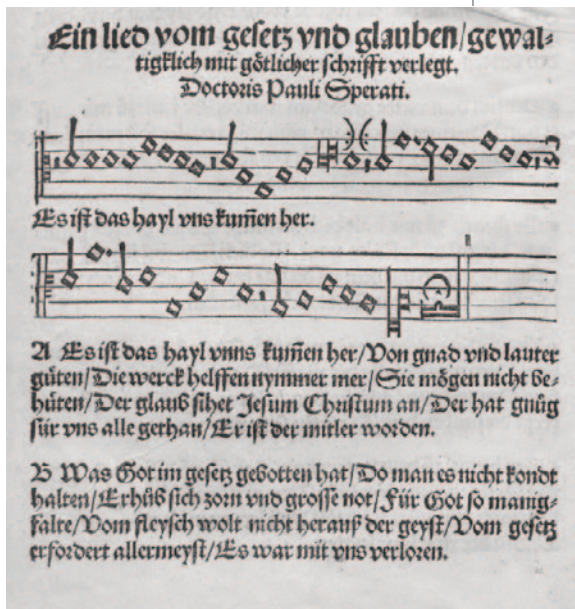 Ein lied vom gesetz vnd glauben/gewal-
tigklich mit götlicher schrifft verlegt.
Doctoris Pauli Sperati.
Es ist das hayl vns kum̃en her.
A Es ist das hayl vnns kum̃en her/Von gnad vnd lauter
güten/Die werck helffen nymmer mer/Sie mögen nicht be-
hüten/Der glaub sihet Jesum Christum an/Der hat gnůg
für vns alle gethan/Er ist der mitler worden.
B Was Got im gesetz gebotten hat/Do man es nicht kondt
halten/Erhůb sich zorn vnd grosse not/Für Got so manig-
falte/Vom fleysch wolt nicht herauß der geyst/Vom gesetz
erfordert allermeyst/Es war mit vns verloren.